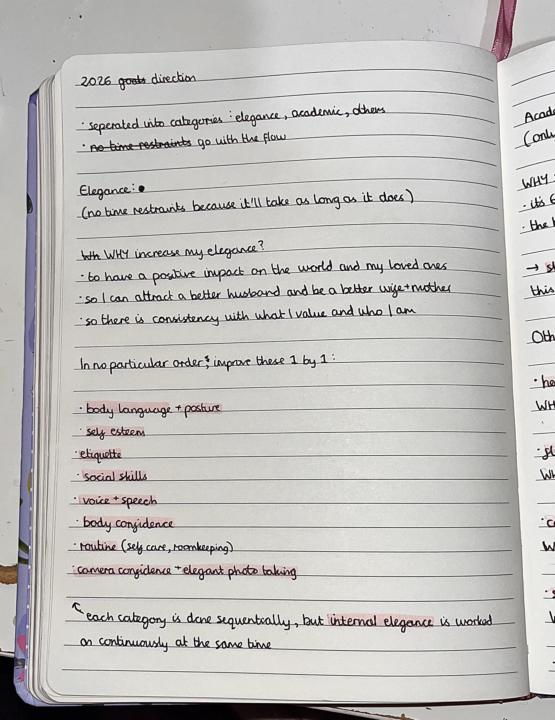 2026 goals direction
· seperated into categories : elegance, academic, others
· no time restraints go with the flow
Elegance:
(no time restraints because it'll take as long as it does)
Wh WHY increase my elegance?
· to have a positive impact on the world and my loved ones
· so I can attract a better husband and be a better wife + mother
· so there is consistency with what I value and who I am
In no particular order, improve these 1 by 1 :
· body language + posture
· self esteem
· etiquette
· social skills
· voice + speech
· body confidence
· routine (self care, roomkeeping)
· camera confidence + elegant photo taking
↖ each category is done sequentially, but internal elegance is worked
on continuously at the same time
(onl
WHY
· it's
· the
→
this
Oth
· he
WH
Wh
W